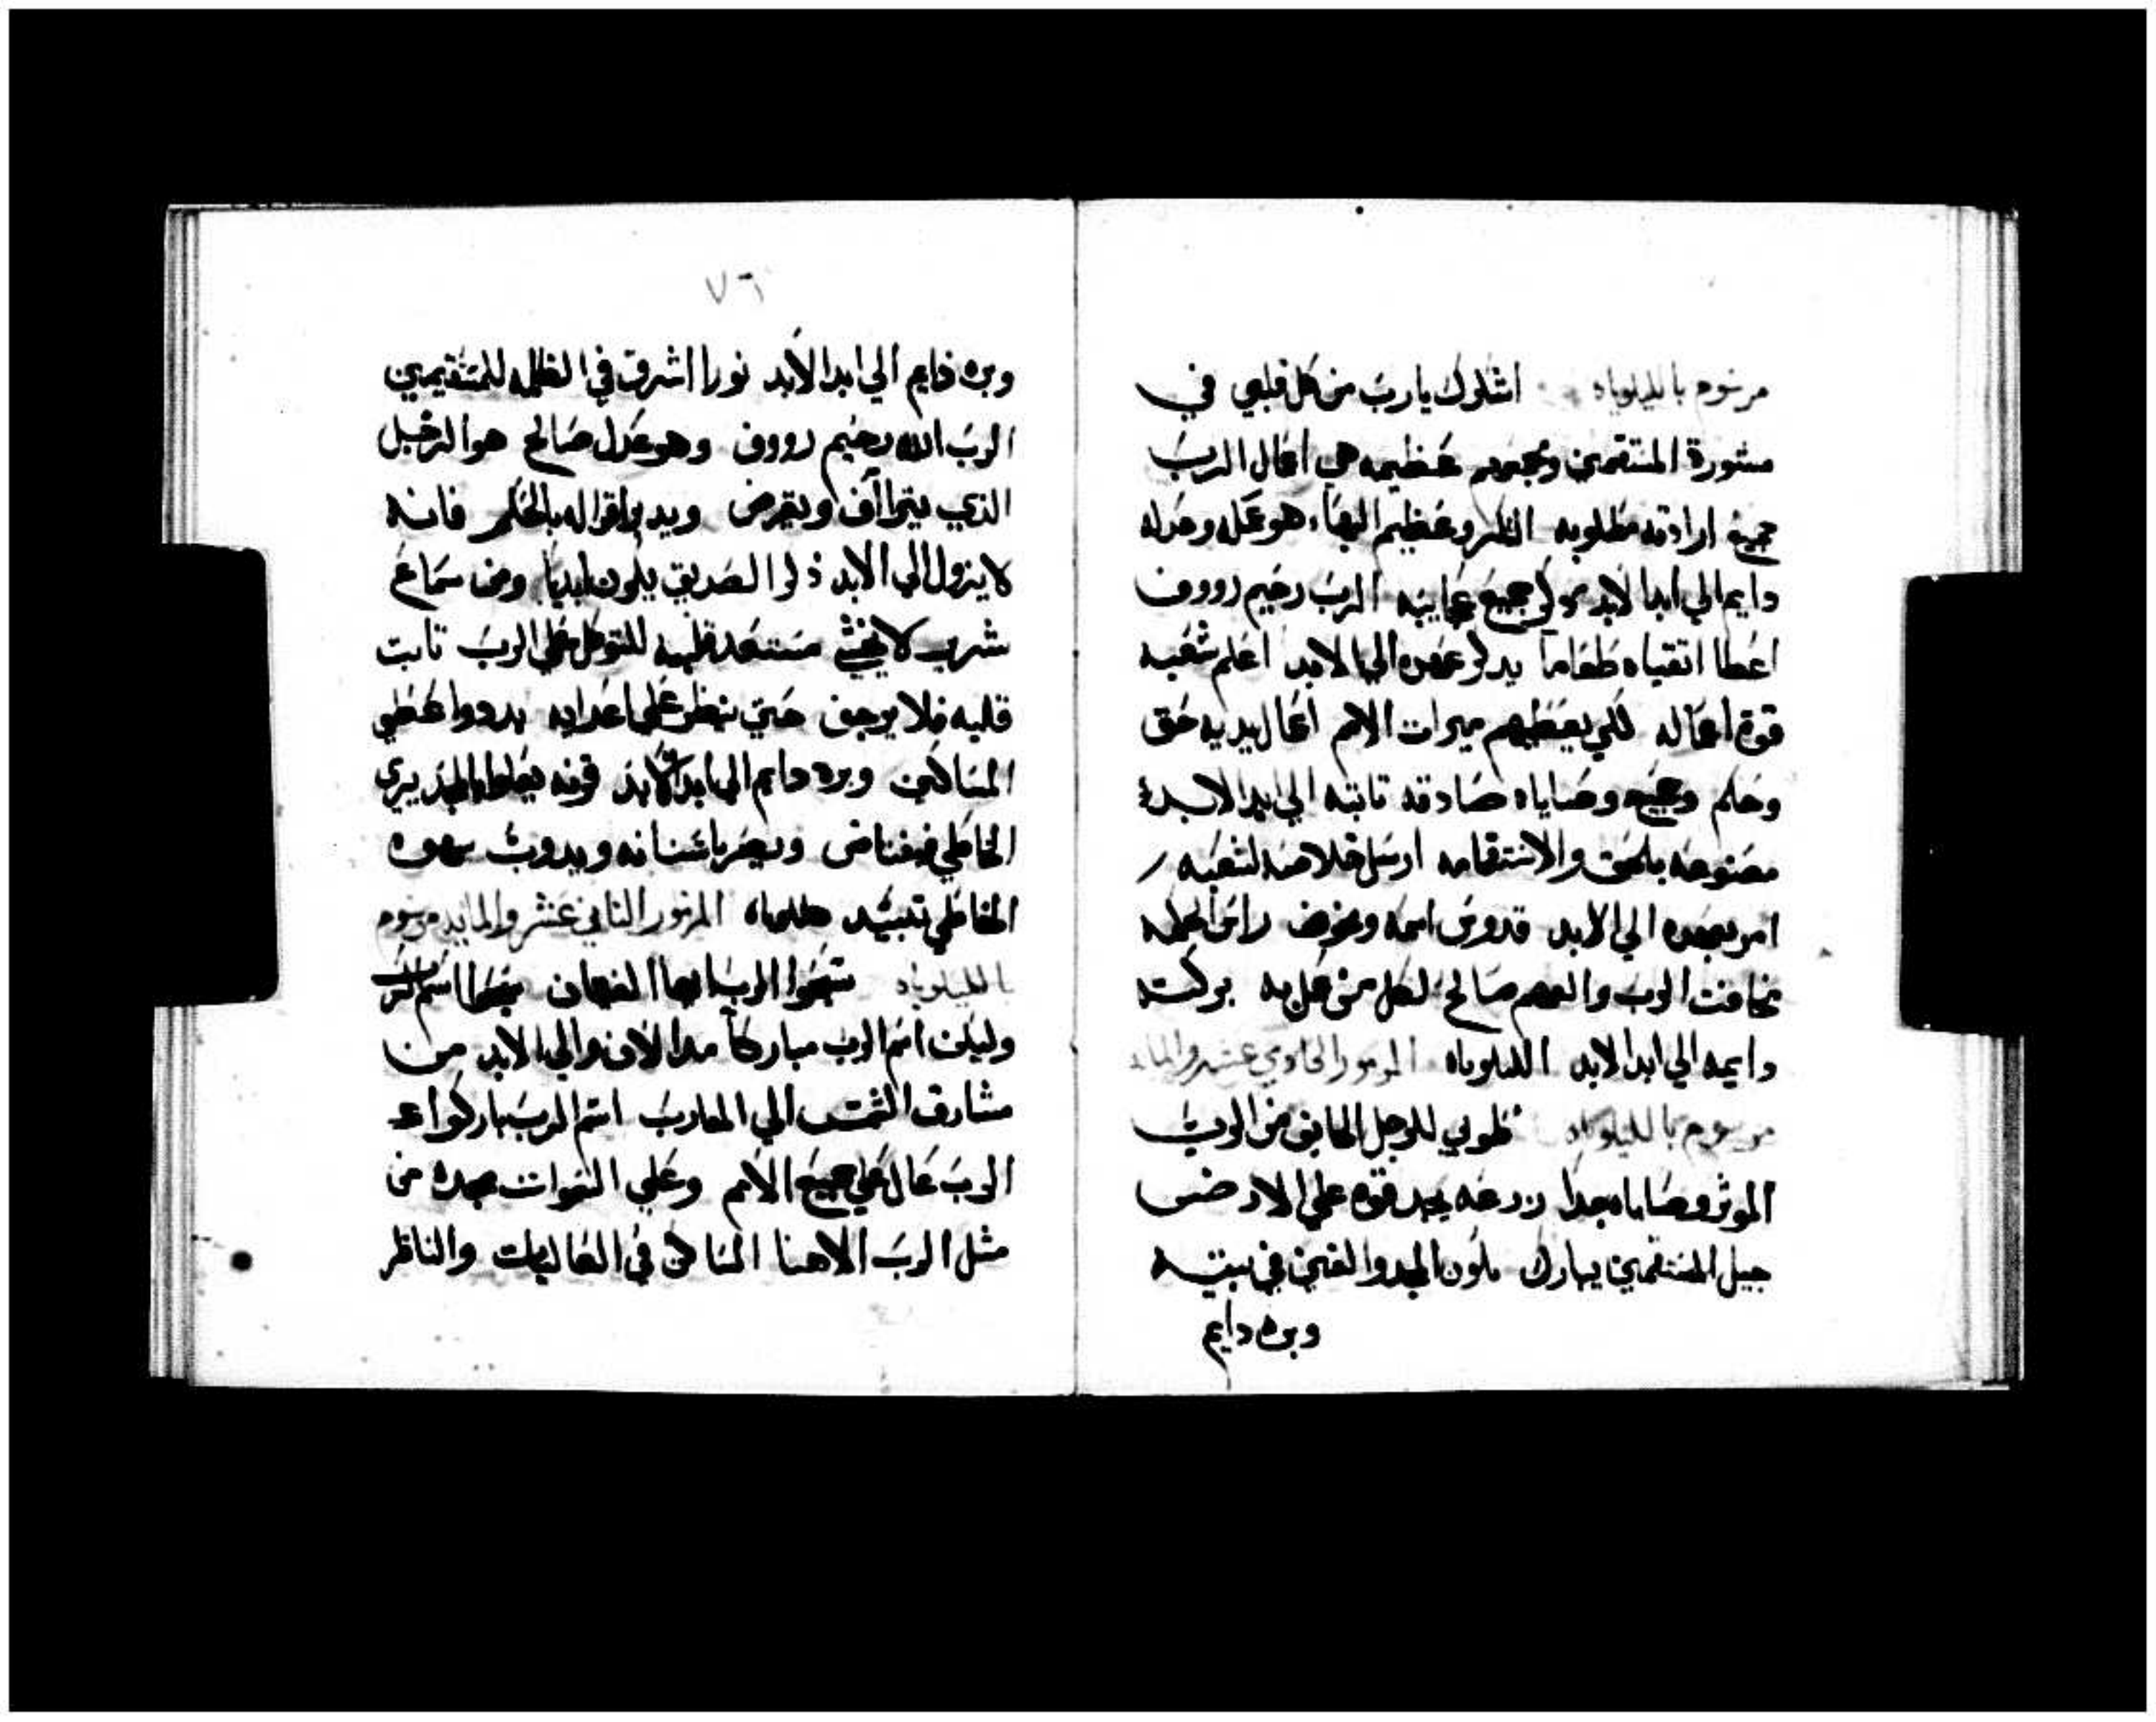 مرسوم بالليلوياه اشكرك يارب من كل قلبي في
مشورة المستقيمين ومجمعهم عظيمه هي اعمال الرب
جميع ارادته مطلوبه الشكر وعظيم البهاء هو عمله وعدله
دايم الي ابد الابد ذكر جميع عجايبه الرب رحيم رووف
اعطا اتقياه طعاما يدكر عهده الي الابد اعلم شعبه
قوة اعماله لكي يعطيهم ميرات الامم اعمال يديه حق
وحكم وجميع وصاياه صادقه تابته الي ابد الابد
مصنوعه بالحق والاستقامه ارسل خلاصه لشعبه
امر بعهده الي الابد قدوس اسمه ومخوف راس الحكمه
مخافت الرب والفهم صالح لكل من عمل به بركته
دايمه الي ابد الابد الليلوياه المزمور الحادي عشر والمايه
مرسوم بالليلوياه طوبي للرجل الخايف من الرب
الموثر وصاياه جدا زرعه يجد قوه علي الارض
جيل المستقيمين يبارك يكون المجد والغني في بيته
وبره دايم
٧٦
وبره دايم الي ابد الابد نورا اشرق في الظلمه للمستقيمين
الرب الاله رحيم رووف وهو عدل صالح هو الرجل
الذي يترااف ويقرض ويدبر اقواله بالحكم فانه
لا يزول الي الابد ذكر الصديق يكون ابديا ومن سماع
شرب لا يخشي مستعد قلبه للتوكل علي الرب تابت
قلبه فلا يرجف حتي ينظر علي اعدايه بدد واعطي
المساكين وبره دايم الي ابد الابد قرنه يعلوا بالمجد يري
الخاطي فيغتاض ويصر باسنانه ويدوب شهوه
الخاطي تبيد هللوياه المزمور الثاني عشر والمايه مرسوم
بالليلوياه سبحوا الرب ايها الفتيان سبحوا اسم الرب
وليكن اسم الرب مباركا مدالان والي الابد من
مشارق الشمس الي المغارب اسم الرب باركوا
الرب عال علي جميع الامم وعلي السموات مجده من
مثل الرب الاهنا الساكن في العاليات والناظر